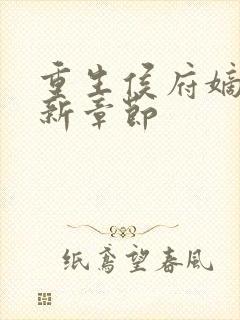 重生侯府嫡
新章节
纸鸢望春风